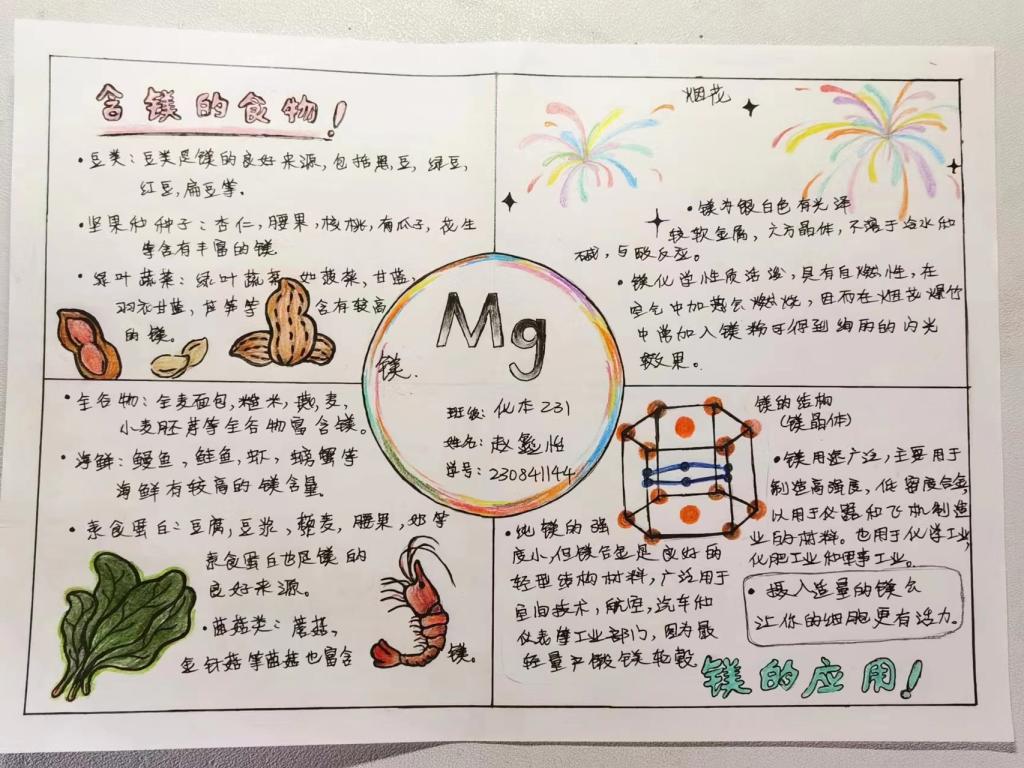 含镁的食物!
·豆类:豆类是镁的良好来源,包括黑豆,绿豆,
红豆,扁豆等.
·坚果和种子:杏仁,腰果,核桃,南瓜子,花生
等含有丰富的镁.
·绿叶蔬菜:绿叶蔬菜 如菠菜,甘蓝,
羽衣甘蓝,芦笋等 含有较高
的镁。
·全谷物:全麦面包,糙米,燕麦,
小麦胚芽等全谷物富含镁。
·海鲜:鳗鱼,鲑鱼,虾,螃蟹等
海鲜有较高的镁含量.
·素食蛋白:豆腐,豆浆,藜麦,腰果,奶等
素食蛋白也是镁的
良好来源。
·菌菇类:蘑菇,
金针菇等菌菇也富含 镁。
Mg
镁.
班级:化本231
姓名:赵 怡
学号:230841144
烟花
·镁为银白色有光泽
较软金属,六方晶体,不溶于冷水和
碱,与酸反应。
·镁化学性质活泼,具有自燃性,在
空气中加热会燃烧,因而在烟花爆竹
中常加入镁粉可得到绚丽的闪光
效果。
镁的结构
(镁晶体)
·镁用途广泛,主要用于
制造高强度,低密度合金,
以用于仪器和飞机制造
业的材料。也用于化学工业,
化肥工业和军事工业。
·纯镁的强
度小,但镁合金是良好的
轻型结构材料,广泛用于
空间技术,航空,汽车和
仪表等工业部门,因为最
轻量产锻镁轮毂
·摄入适量的镁会
让你的细胞更有活力.
镁的应用!